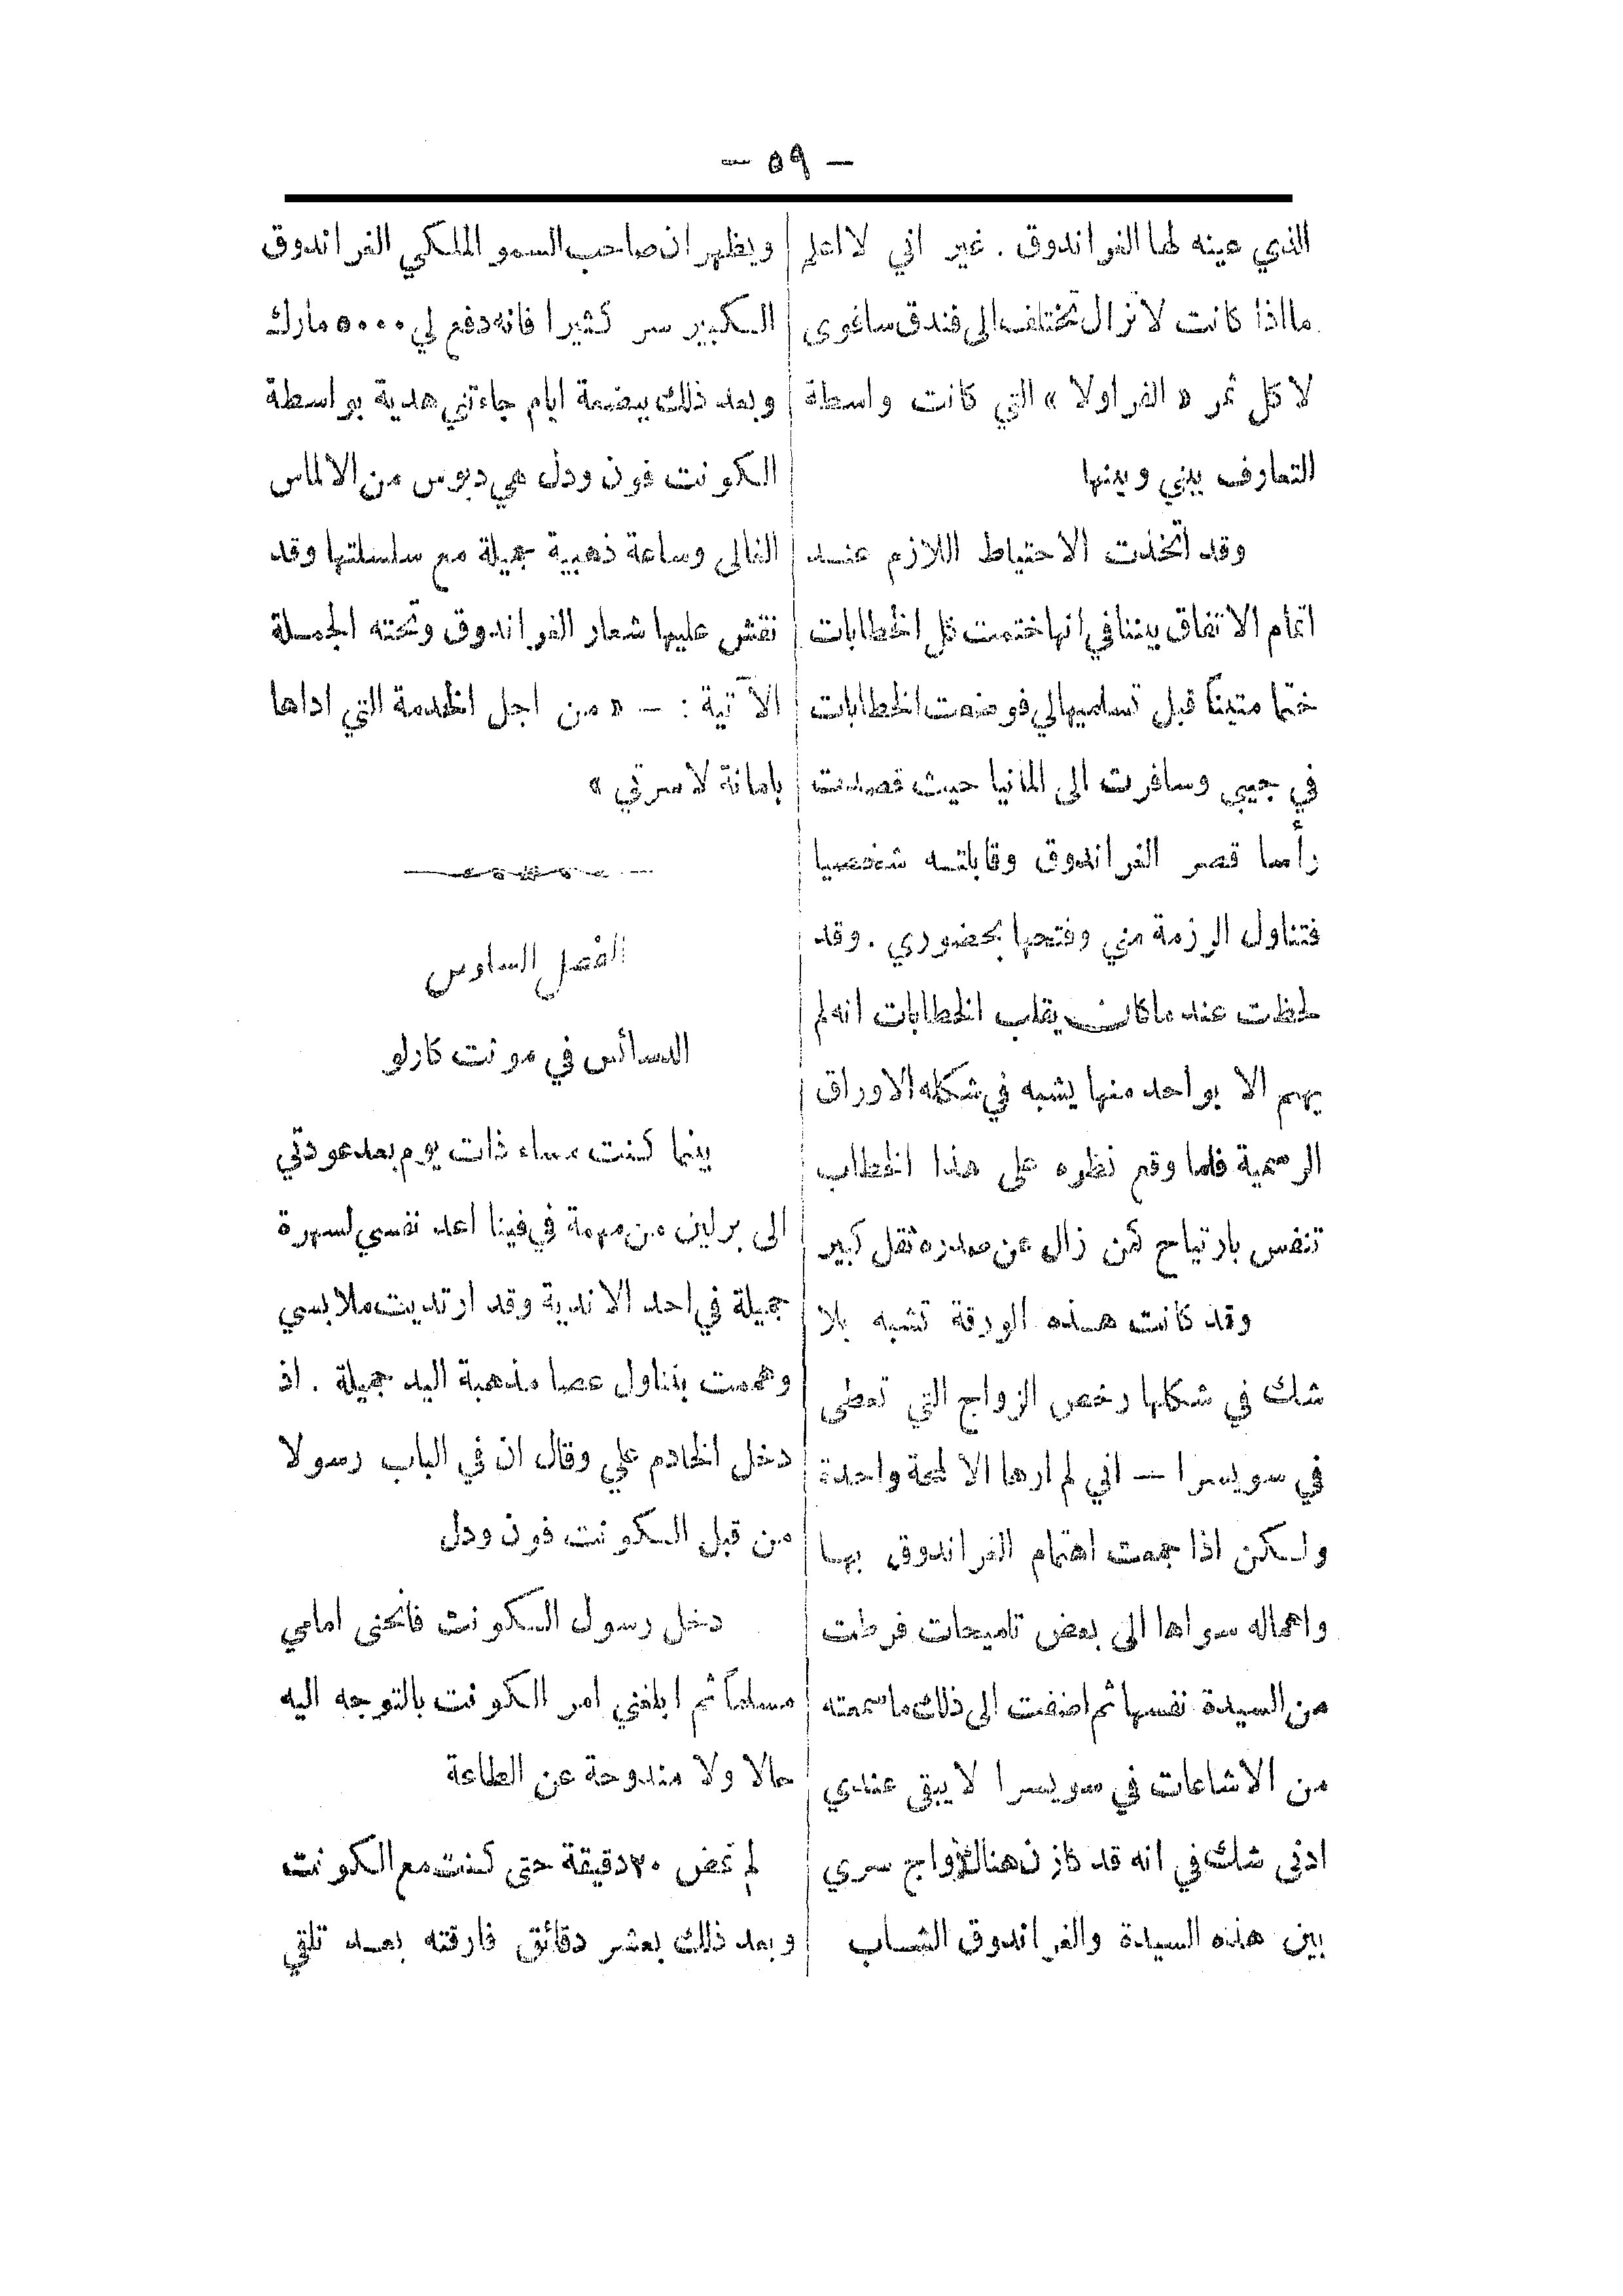 — ٥٩ —
الذي عينه لها الغراندوق . غير اني لا اعلم
ما اذا كانت لا تزال تختلف الى فندق ساغوى
لا كل ثمر « الفراولا » التي كانت واسطة
التعارف بيني وبينها
وقد اتخذت الاحتياط اللازم عند
اتمام الاتفاق بيننا في انها ختمت كل الخطابات
ختما متيناً قبل تسليمها لي فوضعت الخطابات
في جيبي وسافرت الى المانيا حيث قصدت
رأسا قصر الغراندوق وقابلته شخصيا
فتناول الرزمة مني وفتحها بحضوري . وقد
لحظت عند ما كان يقلب الخطابات انه لم
يهم الا بواحد منها يشبه في شكله الاوراق
الرسمية فلما وقع نظره على هذا الخطاب
تنفس بارتياح كمن زال عن صدره ثقل كبير
وقد كانت هذه الورقة تشبه بلا
شك في شكلها رخص الزواج التي تعطى
في سويسرا — اني لم ارها الا لمحة واحدة
ولكن اذا جمعت اهتمام الغراندوق بها
واهماله سواها الى بعض تلميحات فرطت
من السيدة نفسها ثم اضفت الى ذلك ما سمعته
من الاشاعات في سويسرا لا يبقى عندي
ادنى شك في انه قد كان هناك زواج سري
بين هذه السيدة والغراندوق الشاب
ويظهر ان صاحب السمو الملكي الغراندوق
الكبير سر كثيرا فانه دفع لي ٥٠٠٠ مارك
وبعد ذلك ببضعة ايام جاءتني هدية بواسطة
الكونت فون ودل هي دبوس من الالماس
الغالى وساعة ذهبية جميلة مع سلسلتها وقد
نقش عليها شعار الغراندوق وتحته الجملة
الآتية : — « من اجل الخدمة التي اداها
بامانة لاسرتي »
الفصل السادس
الدسائس في مونت كارلو
بينما كنت مساء ذات يوم بعد عودتي
الى برلين من مهمة في فينا اعد نفسي لسهرة
جميلة في احد الاندية وقد ارتديت ملابسي
وهممت بتناول عصا مذهبة اليد جميلة . اذ
دخل الخادم علي وقال ان في الباب رسولا
من قبل الكونت فون ودل
دخل رسول الكونت فانحنى امامي
مسلماً ثم ابلغني امر الكونت بالتوجه اليه
حالا ولا مندوحة عن الطاعة
لم تمض ٢٠ دقيقة حتى كنت مع الكونت
وبعد ذلك بعشر دقائق فارقته بعد تلقي